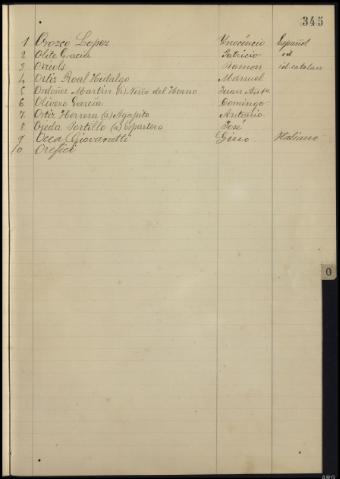 345
1 Orozco Lopez Ynocéncio Español
2 Olite Gracia Patricio id
3 Orriols Ramon id catalan
4 Ortiz Roal Hidalgo Manuel
5 Ordoñez Martin (a) Niño del Horno Juan Ant.
6 Olivero Garcia Domingo
7 Ortiz Herrera (a) Agapito Antonio
8 Ojeda Portillo (a) Espartero José
9 Occa Giovanelli Gino Italiano
10 Orefice
O